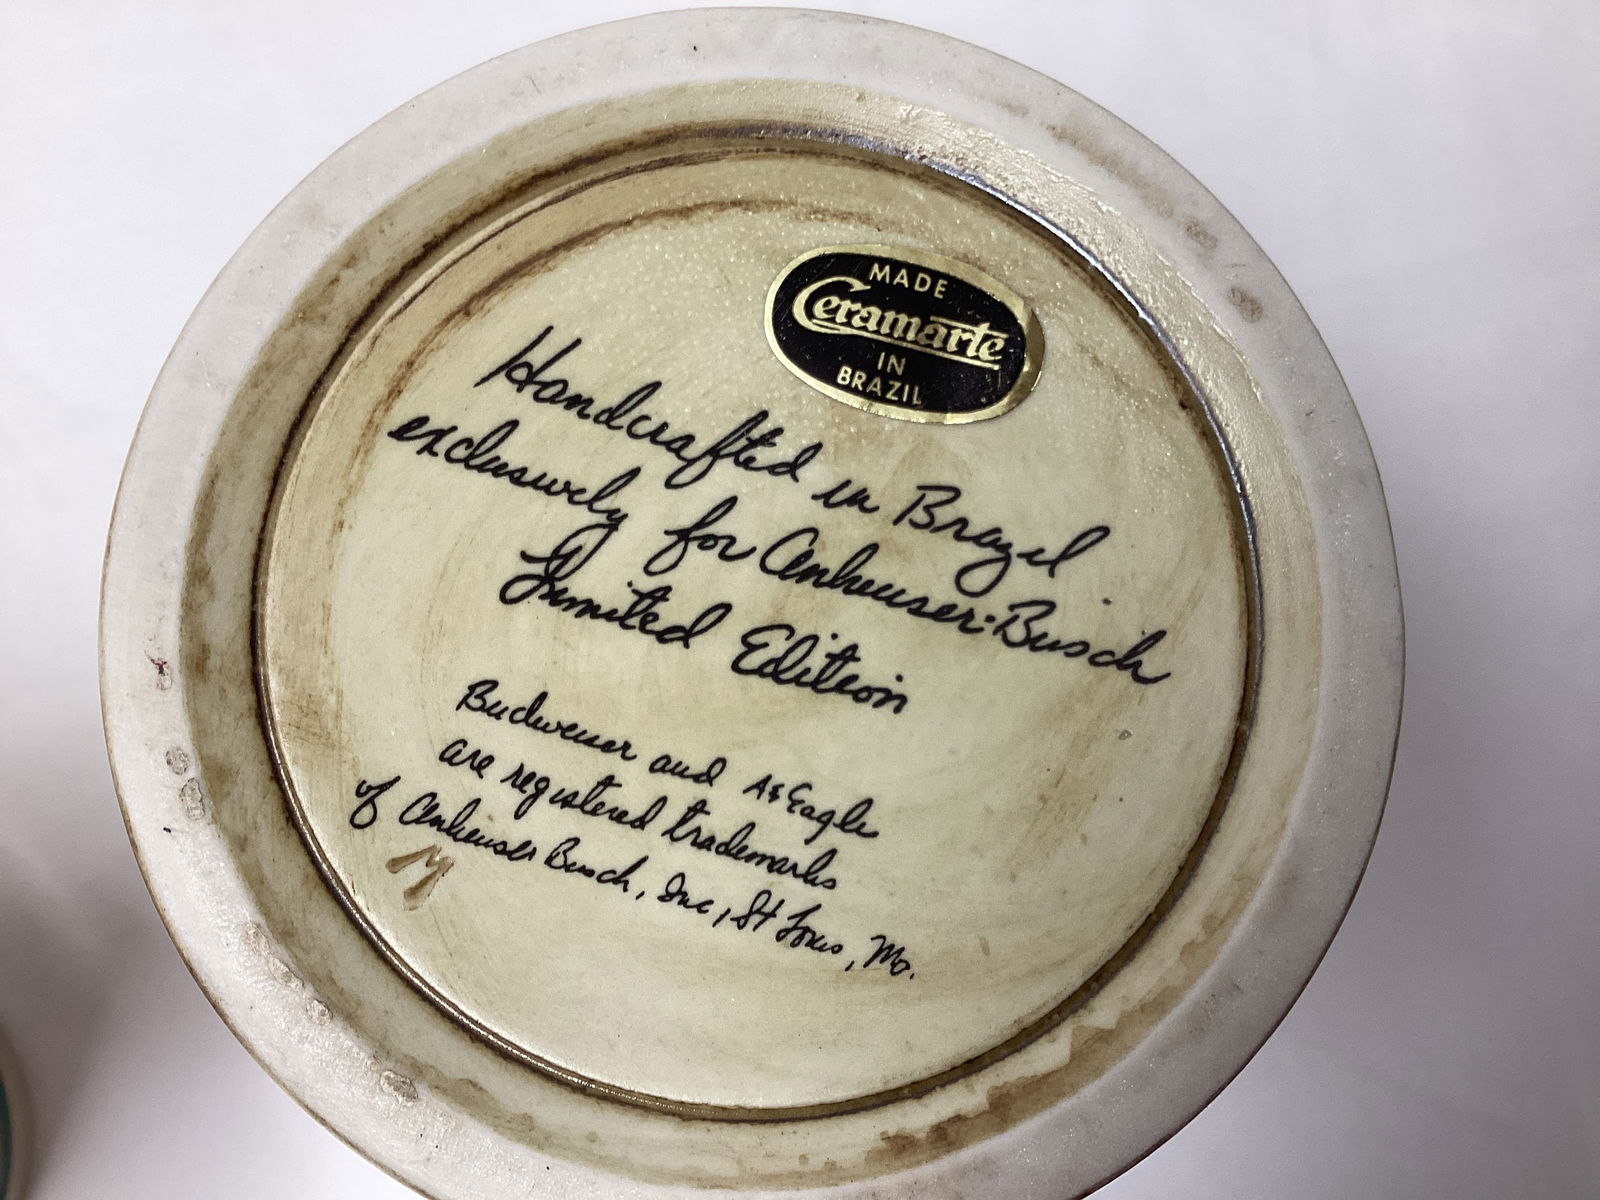 MADE
Ceramarte
IN
BRAZIL
Handcrafted in Brazil
exclusively for Anheuser-Busch
Limited Edition
Budweiser and A&Eagle
are registered trademarks
of Anheuser Busch, Inc, St Louis, Mo.
M